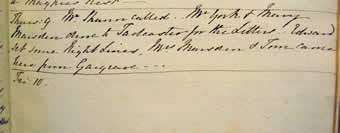 a Magpies Nest
Thurs. 9 Mr Shann called. Mr York & Henry
Marsden drove to Tadcaster for the Letters. Edward
set some Night Lines, Mrs Marsden & Tom came
here from Gargrave
Fri. 10.